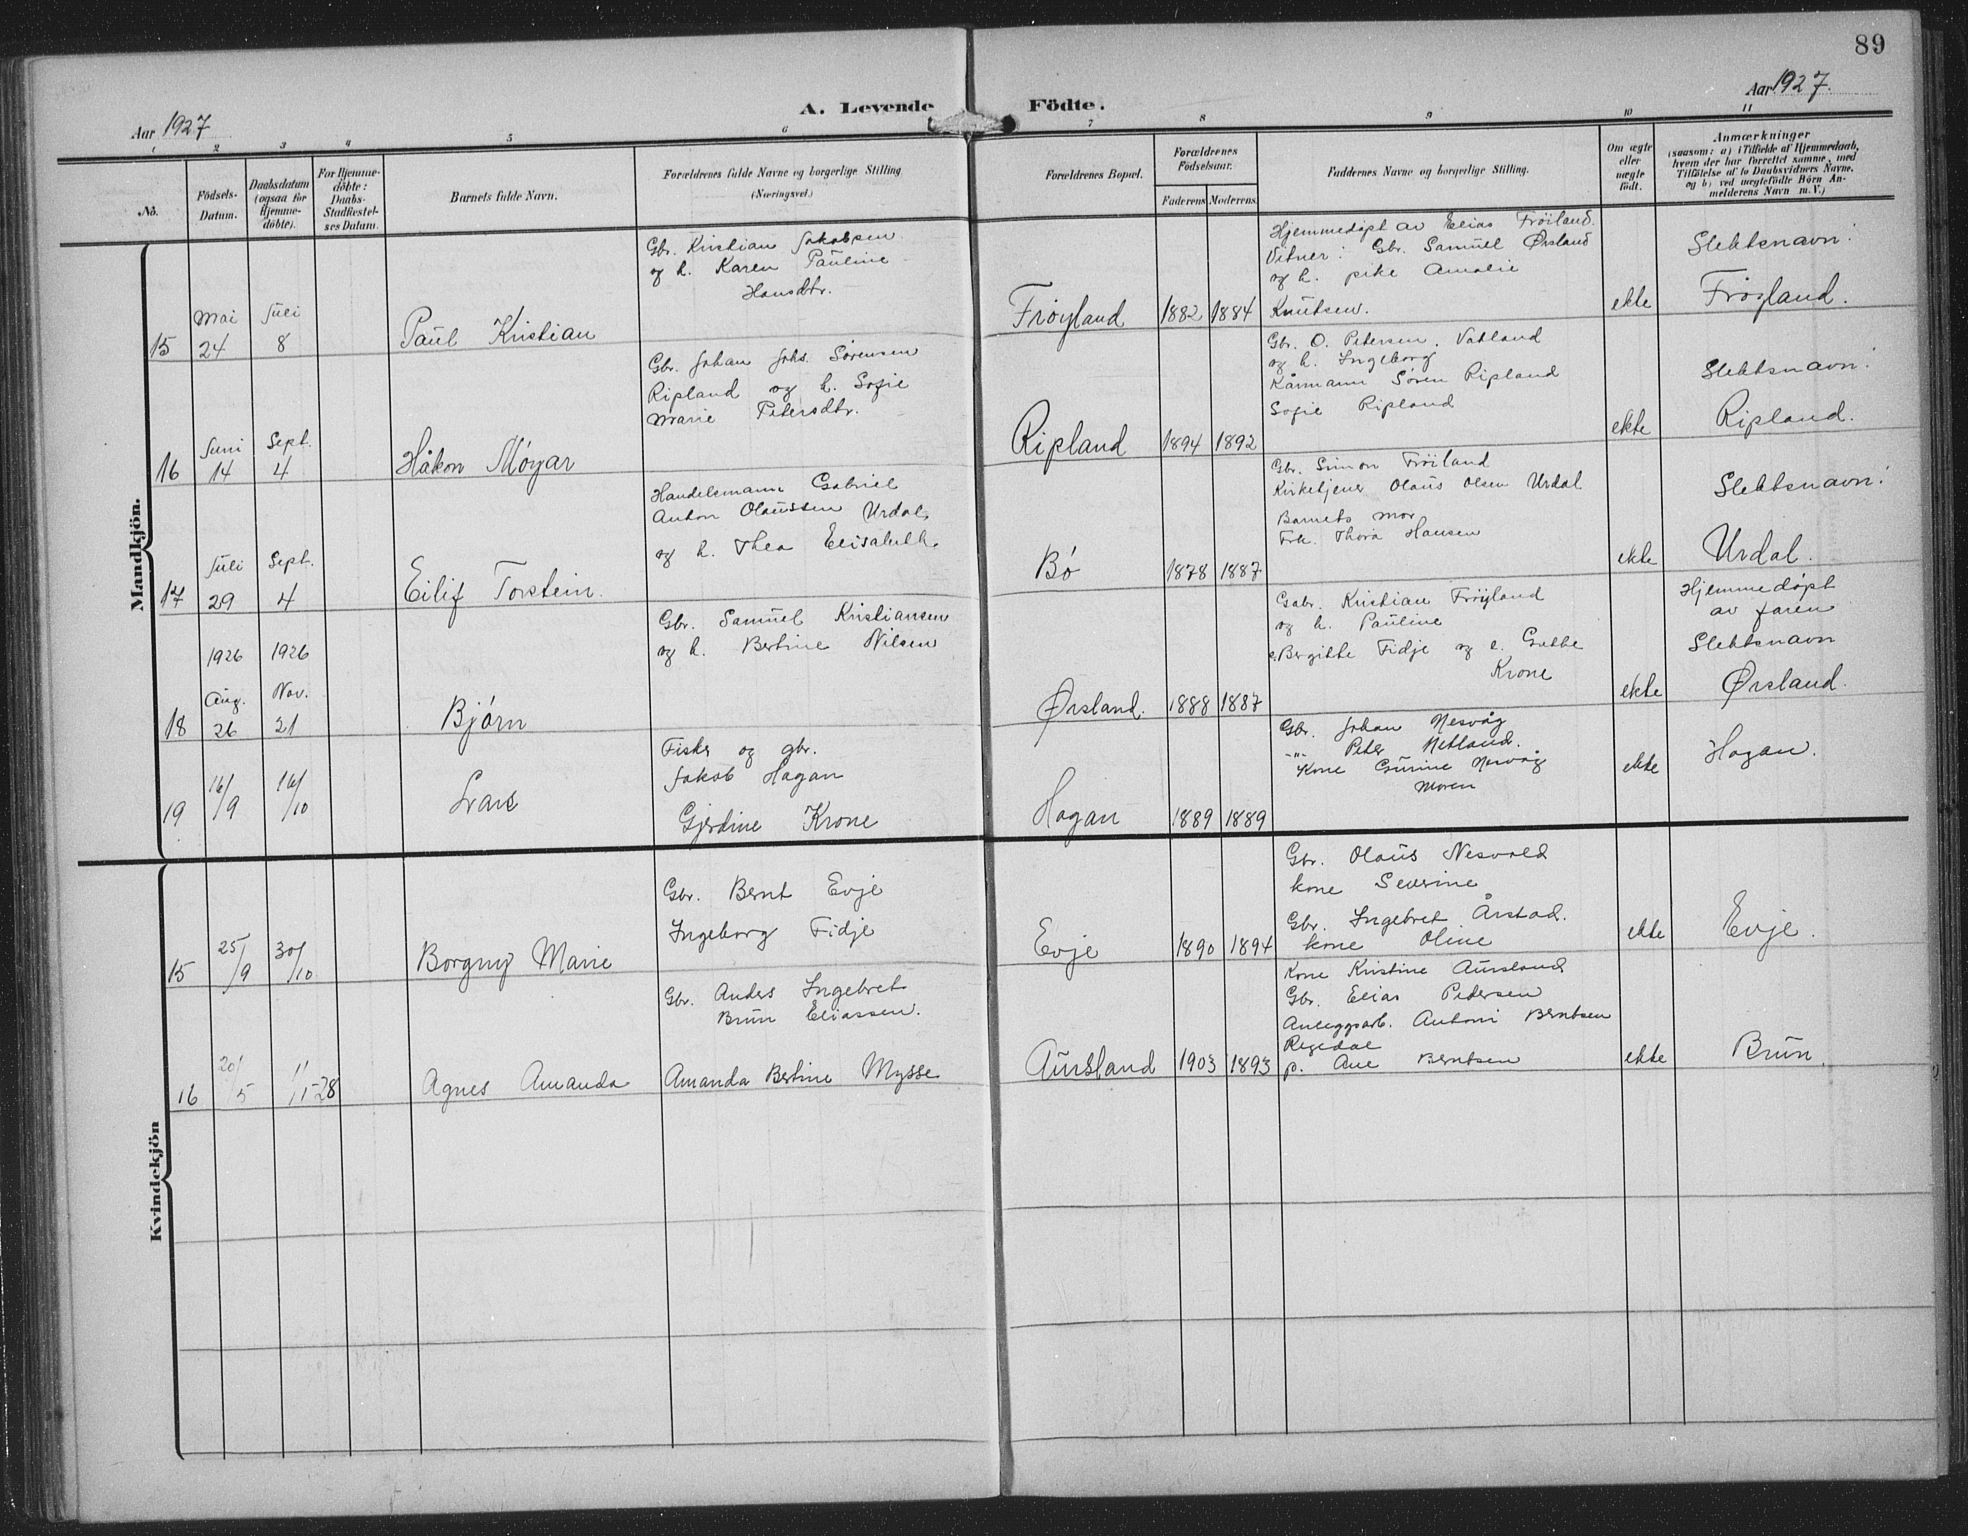 89
Aar 1927
A. Levende Födte.
Aar 1927.
1 2 3 4 5 6 7 8 9 10 11
No.
Födsels-
Datum.
Daabsdatum
(ogsaa for
Hjemme-
döbte).
For Hjemme-
döbte:
Daabs-
Stadfæstel-
ses Datum.
Barnets fulde Navn.
Forældrenes fulde Navne og borgerlige Stilling
(Næringsvei.)
Forældrenes Bopæl.
Forældrenes
Födselsaar.
Faderens Moderens
Faddernes Navne og borgerlige Stilling.
Om ægte
eller
uægte
født.
Anmærkninger
(saasom: a) i Tilfælde af Hjemmedaab,
hvem der har forrettet samme, med
Tilföielse af to Daabsvidners Navne,
og b) ved uægtefödte Börn An-
melderens Navn m. V.)
Mandkjön.
15
Mai
24
Juli
8
Paul Kristian
Gbr. Kristian Jakobsen
og h. Karen Pauline
Hansdtr.
Frøyland
1882 1884
Hjemmedøpt av Elias Frøiland.
Vitner: Gbr. Samuel Ørsland
og h. pike Amalie
Knutsen.
ekte
Slektsnavn:
Frøyland.
16
Juni
14
Sept.
4
Håkon Møyar
Gbr. Johan Johs. Sørensen
Ripland og h. Sofie
Marie Petersdtr.
Ripland
1894 1892
Gbr. O. Petersen. Vatland
og h. Ingeborg
Kårmann Søren Ripland
Sofie Ripland
ekte
Slektsnavn:
Ripland.
17
Juli
29
Sept.
4
Eilif Torstein.
Handelsmann Gabriel
Anton Olaussen Urdal
og h. Thea Elisabeth
Bø
1878 1887
Gbr. Simon Frøiland
Kirketjener Olaus Olsen Urdal
Barnets mor
Frk. Thora Hansen
ekte
Slektsnavn:
Urdal.
18
1926
Aug.
26
1926
Nov.
21
Bjørn
Gbr. Samuel Kristiansen
og h. Bertine Nilsen
Ørsland.
1888 1887
Gabr. Kristian Frøyland
og h. Pauline
e. Bergitte Fidje og e. Grethe
Krone
ekte
Hjemmedøpt
av faren
Slektsnavn
Ørsland.
19
16/9
16/10
Lars
Fisker og gbr.
Jakob Hagan
Gjerdine Krone
Hagan
1889 1889
Gbr. Johan Nesvåg
-"- Peter Netland.
Kone Gurine Nesvåg
Moren
ekte
Hagan.
Kvindekjön
15
25/9
30/10
Borgny Marie
Gbr. Bernt Evje
Ingeborg Fidje
Evje
1890 1894
Gbr. Olaus Nesvold
kone Severine
Gbr. Ingebret Årstad.
kone Oline
ekte
Evje.
16
20/5
11/1528
Agnes Amanda
Gbr. Anders Ingebret
Brun Eliassen.
Amanda Bertine Mysse
Aursland
1903 1893
Kone Kristine Aursland
Gbr. Elias Pedersen
Anleggsarb. Antoni Berntsen
Regedal
p. Ane Berntsen
ekte
Brun.